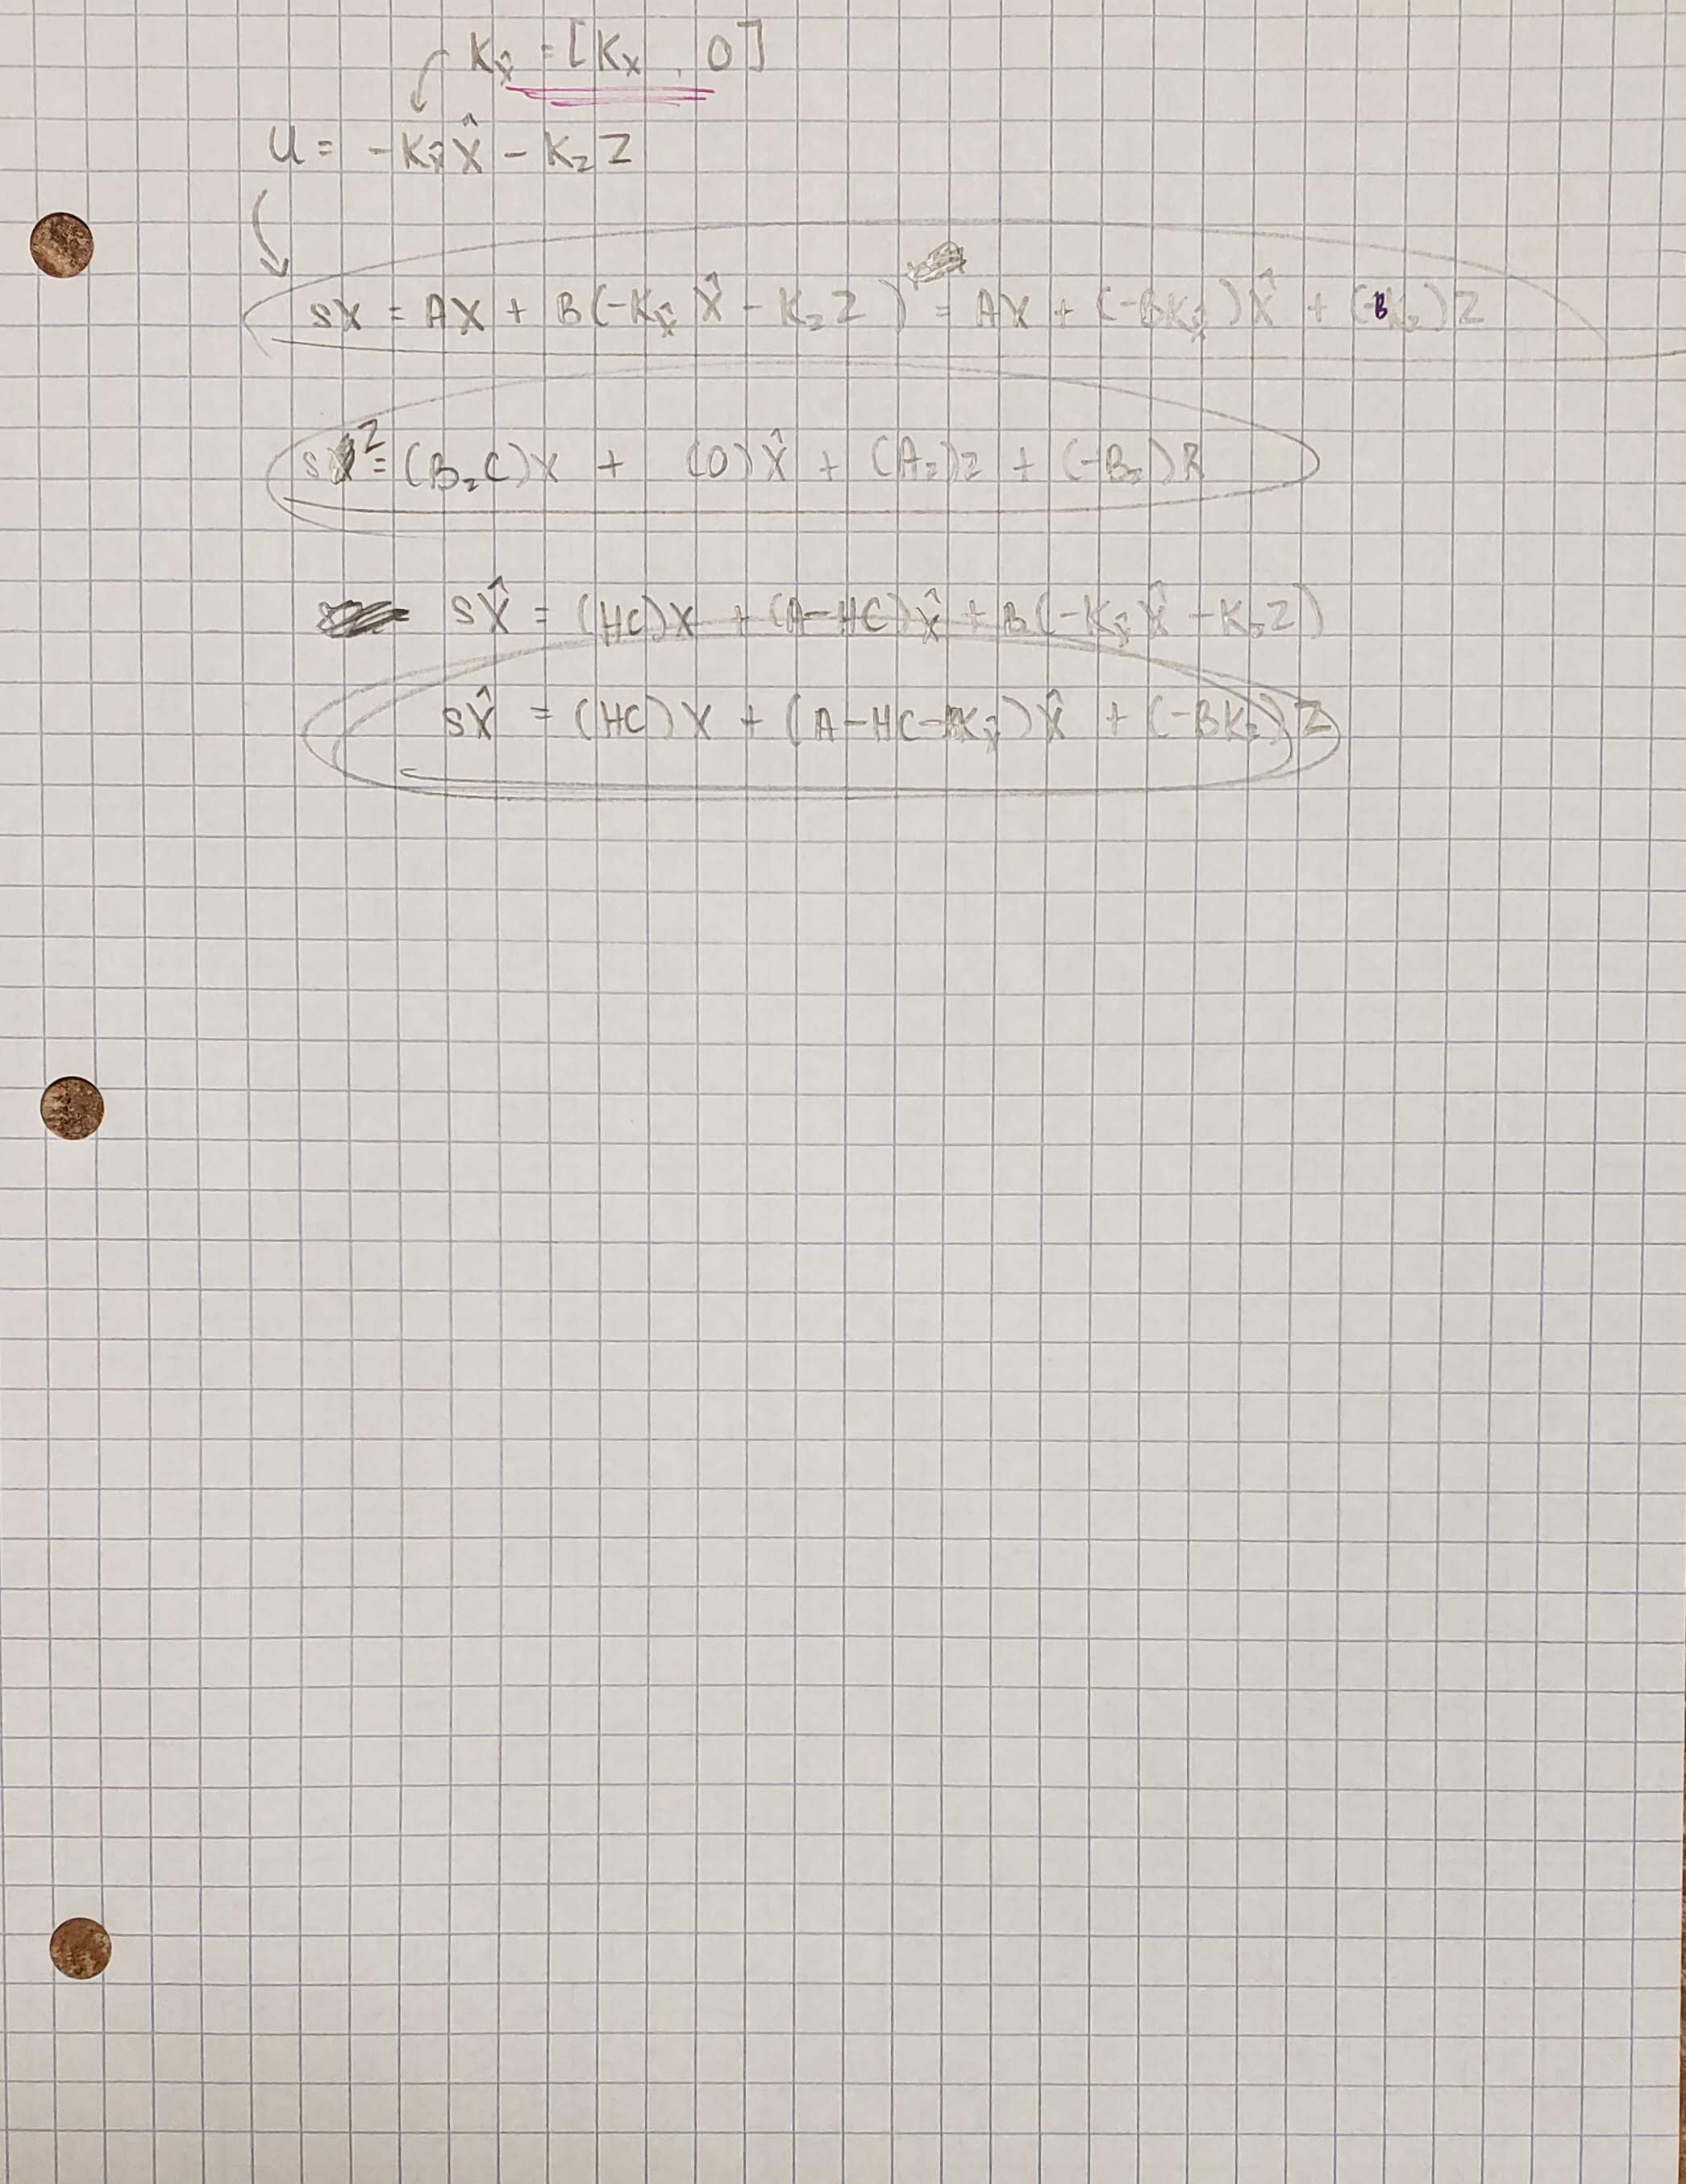 K_x̂ = [K_x , 0]
U = -K_x̂ X̂ - K_z Z
sX = AX + B(-K_x̂ X̂ - K_z Z) = AX + (-BK_x̂)X̂ + (-BK_z)Z
sZ = (B_z C)X + (0)X̂ + (A_z)Z + (-B_z)R
sX̂ = (HC)X + (A-HC)X̂ + B(-K_x̂ X̂ - K_z Z)
sX̂ = (HC)X + (A-HC-BK_x̂)X̂ + (-BK_z)Z